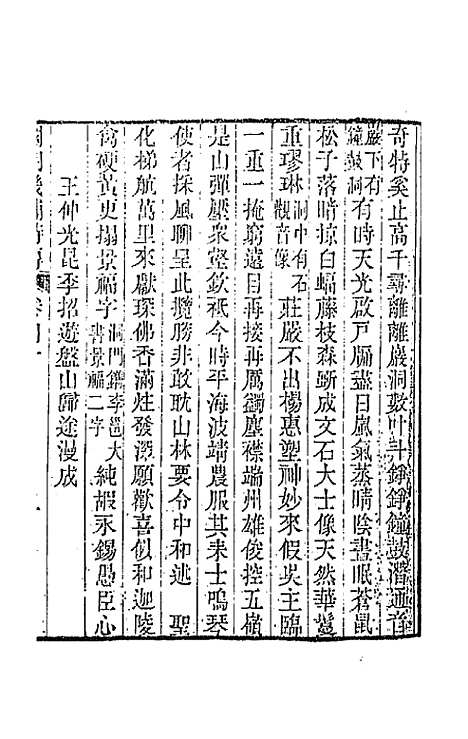 奇特奚止高千尋離離巖洞數叶斗錚錚鐘鼓潛通音
巖下有鐘鼓洞有時天光啟戶牖盡日嵐氣蒸晴陰晝眠蒼鼠
松子落晴掠白蝠藤枝森斷成文石大士像天然華鬘
重璆琳洞中有石觀音像莊嚴不出楊惠塑神妙來假吳主臨
一重一掩窮遠目再接再厲蠲塵襟端州雄俊控五嶺
是山彈壓衆壑欽祗今時平海波靖農服其耒士鳴琴
使者採風聊呈此攬勝非敢耽山林要令中和述　聖
化梯航萬里來獻琛佛香滿炷發深願歡喜似和迦陵
禽硬黃更搨景福字洞門鐫李邕大書景福二字純嘏永錫愚臣心
王仲光昆季招遊盤山歸途漫成